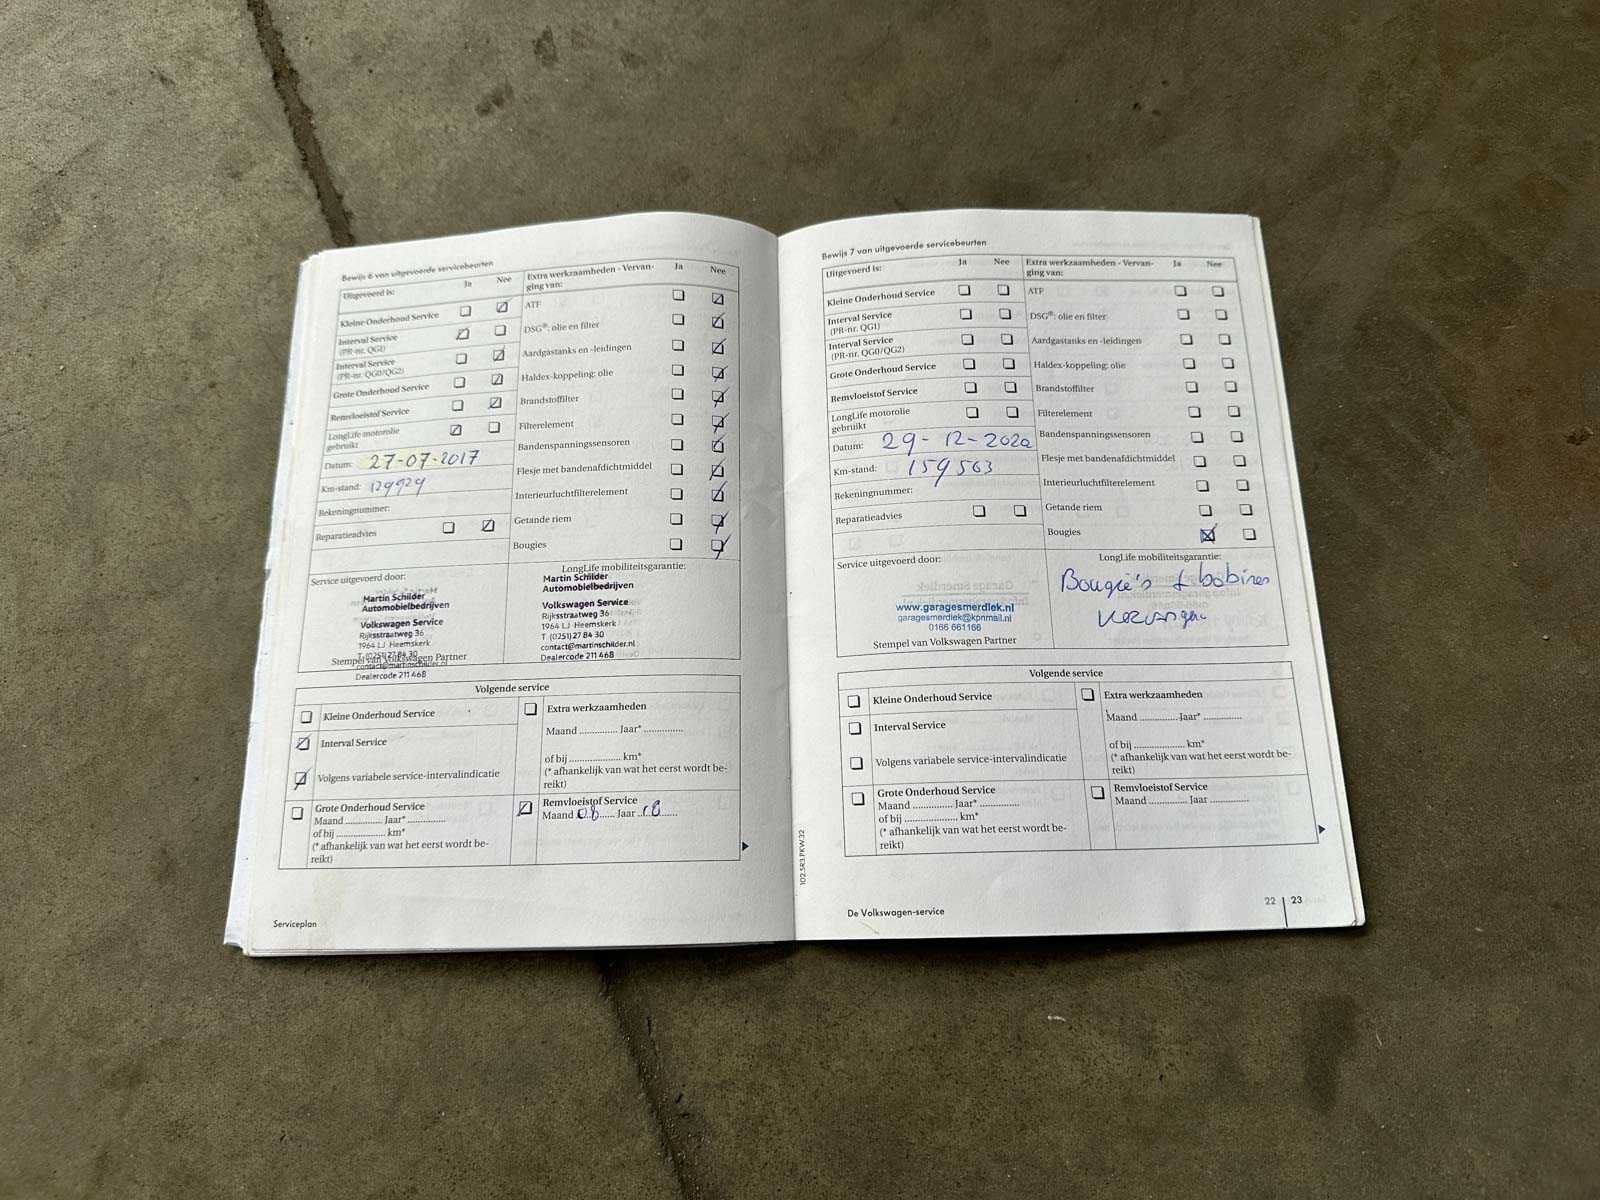 Bewijs 6 van uitgevoerde servicebeurten
Uitgevoerd is: Ja Nee
Kleine Onderhoud Service
Interval Service
(PR-nr. QG1)
Interval Service
(PR-nr. QG0/QG2)
Grote Onderhoud Service
Remvloeistof Service
LongLife motorolie
gebruikt
Datum: 27-07-2017
Km-stand: 129929
Rekeningnummer:
Reparatieadvies
Extra werkzaamheden - Vervan-
ging van: Ja Nee
ATF
DSG®: olie en filter
Aardgastanks en -leidingen
Haldex-koppeling: olie
Brandstoffilter
Filterelement
Bandenspanningssensoren
Flesje met bandenafdichtmiddel
Interieurluchtfilterelement
Getande riem
Bougies
Service uitgevoerd door:
Martin Schilder
Automobielbedrijven
Volkswagen Service
Rijksstraatweg 36
1964 LJ Heemskerk
T (0251) 27 84 30
Stempel van Volkswagen Partner
contact@martinschilder.nl
Dealercode 211 46B
LongLife mobiliteitsgarantie:
Martin Schilder
Automobielbedrijven
Volkswagen Service
Rijksstraatweg 36
1964 LJ Heemskerk
T (0251) 27 84 30
contact@martinschilder.nl
Dealercode 211 46B
Volgende service
Kleine Onderhoud Service
Interval Service
Volgens variabele service-intervalindicatie
Grote Onderhoud Service
Maand ............. Jaar* .............
of bij .................... km*
(* afhankelijk van wat het eerst wordt be-
reikt)
Extra werkzaamheden
Maand ............. Jaar* .............
of bij .................... km*
(* afhankelijk van wat het eerst wordt be-
reikt)
Remvloeistof Service
Maand 08 Jaar 18
Serviceplan
Bewijs 7 van uitgevoerde servicebeurten
Uitgevoerd is: Ja Nee
Kleine Onderhoud Service
Interval Service
(PR-nr. QG1)
Interval Service
(PR-nr. QG0/QG2)
Grote Onderhoud Service
Remvloeistof Service
LongLife motorolie
gebruikt
Datum: 29-12-2020
Km-stand: 159563
Rekeningnummer:
Reparatieadvies
Extra werkzaamheden - Vervan-
ging van: Ja Nee
ATF
DSG®: olie en filter
Aardgastanks en -leidingen
Haldex-koppeling: olie
Brandstoffilter
Filterelement
Bandenspanningssensoren
Flesje met bandenafdichtmiddel
Interieurluchtfilterelement
Getande riem
Bougies
Service uitgevoerd door:
www.garagesmerdiek.nl
garagesmerdiek@kpnmail.nl
0166 661166
Stempel van Volkswagen Partner
LongLife mobiliteitsgarantie:
Bougie's + bobines
vervangen
Volgende service
Kleine Onderhoud Service
Interval Service
Volgens variabele service-intervalindicatie
Grote Onderhoud Service
Maand ............. Jaar* .............
of bij .................... km*
(* afhankelijk van wat het eerst wordt be-
reikt)
Extra werkzaamheden
Maand ............. Jaar* .............
of bij .................... km*
(* afhankelijk van wat het eerst wordt be-
reikt)
Remvloeistof Service
Maand ............. Jaar .............
102.5R3.PKW.32
De Volkswagen-service
22 23